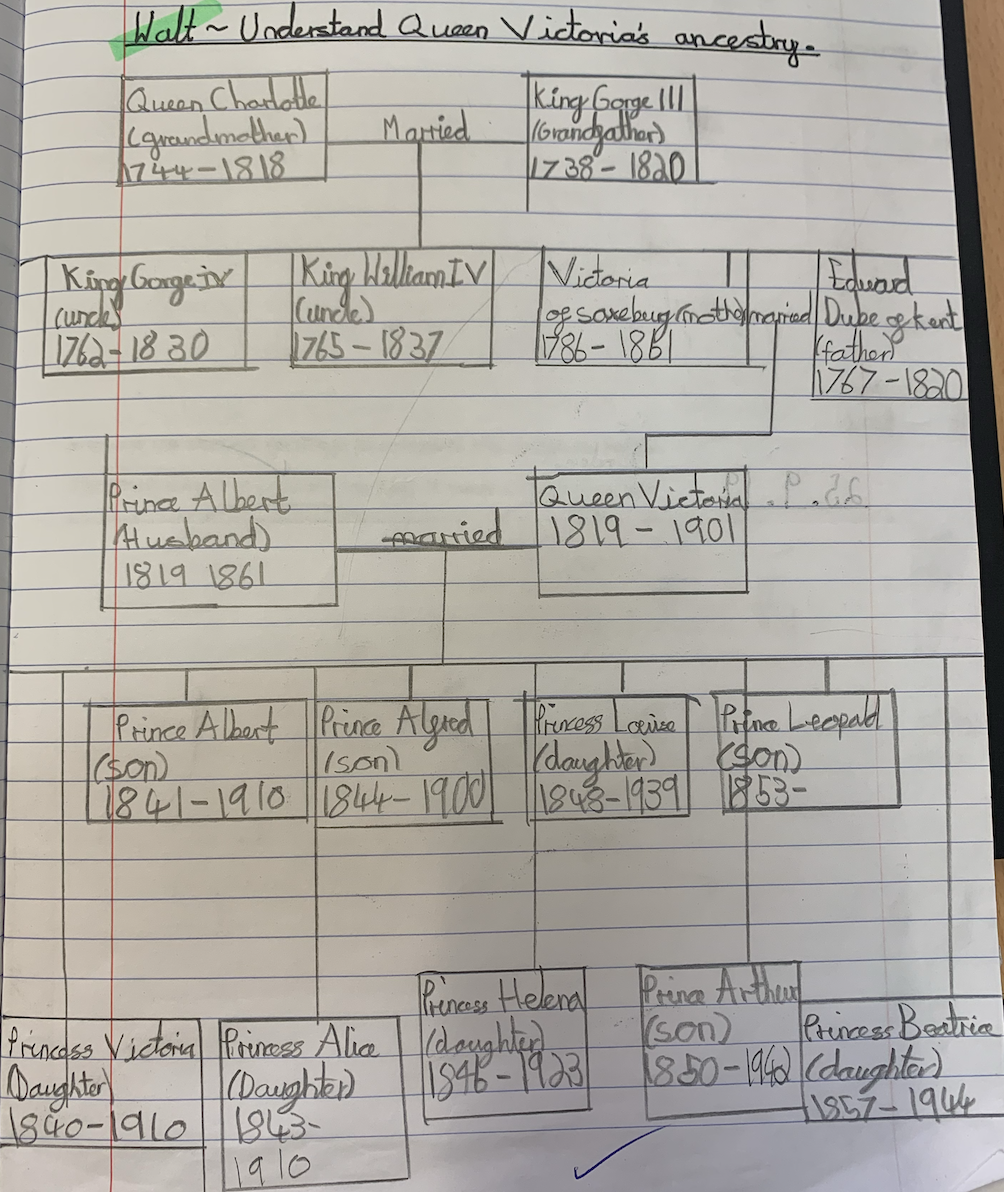 Walt ~ Understand Queen Victoria's ancestry.
Queen Charlotte
(grandmother)
1744 - 1818
Married
King Gorge III
(Grandfather)
1738 - 1820
King Gorge iv
(uncle)
1762 - 1830
King William IV
(uncle)
1765 - 1837
Victoria
of saxeburg (mothe)
1786 - 1861
married
Edward
Duke of kent
(father)
1767 - 1820
Prince Albert
(Husband)
1819 1861
married
Queen Victoria
1819 - 1901
Prince Albert
(son)
1841 - 1910
Prince Alfred
(son)
1844 - 1900
Princess Louise
(daughter)
1848 - 1939
Prince Leopald
(son)
1853 -
Princess Victoria
(Daughter)
1840 - 1910
Princess Alice
(Daughter)
1843 -
1910
Princess Helena
(daughter)
1846 - 1923
Prince Arthur
(son)
1850 - 1942
Princess Beatrice
(daughter)
1857 - 1944